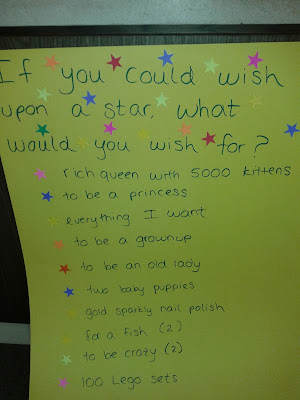 If you could wish
upon a star, what
would you wish for?
rich queen with 5000 kittens
to be a princess
everything I want
to be a grownup
to be an old lady
two baby puppies
gold sparkly nail polish
for a fish (2)
to be crazy (2)
100 Lego sets